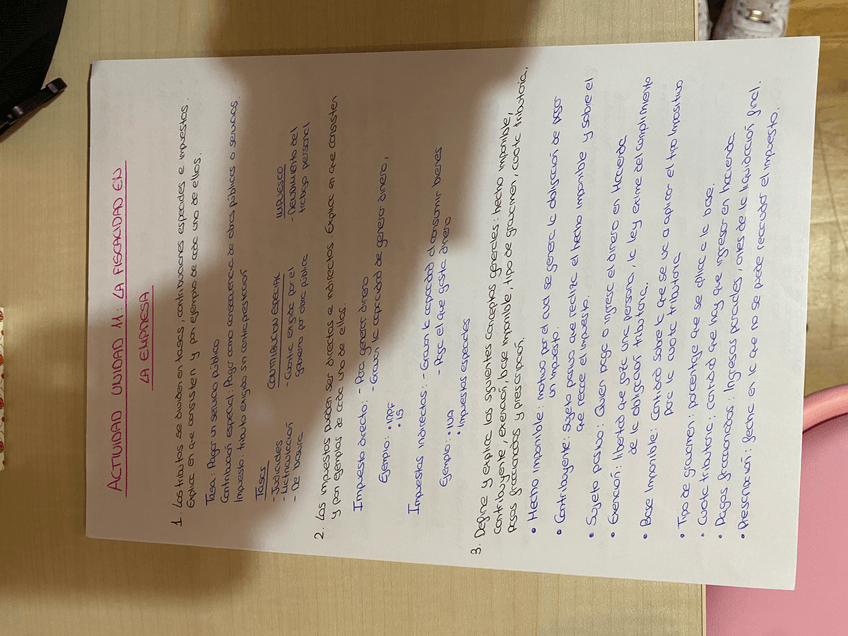 ACTIVIDAD UNIDAD 11: LA FISCALIDAD EN
LA EMPRESA
1. Los tributos se dividen en tasas, contribuciones especiales e impuestos.
Explica en que consisten y pon ejemplo de cada uno de ellos.
Tasa: Pagar un servicio público
Contribución especial: Pago como consecuencia de obras públicas o servicios.
Impuesto: tributo exigido sin contraprestación
Tasas
- Judiciales
- Matriculación
- De basura
CONTRIBUCIÓN ESPECIAL
- Cuantía exigida por el
gobierno por obra pública
IMPUESTO
- Rendimiento del
trabajo personal
2. Los impuestos pueden ser directos e indirectos. Explica en que consisten
y pon ejemplos de cada uno de ellos.
Impuesto directo: - Para generar dinero
- Gravan la capacidad de generar dinero,
Ejemplo: • IRPF
• IS
Impuestos indirectos: - Gravan la capacidad al consumir bienes
- Paga el que gasta dinero
Ejemplo: • IVA
• Impuestos especiales
3. Define y explica los siguientes conceptos generales: hecho imponible,
contribuyente, exención, base imponible, tipo de gravamen, cuota tributaria,
pagos fraccionados y prescripción,
• Hecho imponible: motivo por el cual se genera la obligación de pagar
un impuesto.
• Contribuyente: Sujeto pasivo que realiza el hecho imponible y sobre el
que recae el impuesto.
• Sujeto pasivo: Quien paga o ingresa el dinero en Hacienda
• Exención: libertad que goza una persona, la ley exime del cumplimiento
de la obligación tributaria,
• Base Imponible: Cantidad sobre la que se va a aplicar el tipo impositivo
para la cuota tributaria
• Tipo de gravamen: porcentaje que se aplica a la base,
• Cuota tributaria: cantidad que hay que ingresar en hacienda
• Pagos fraccionados: Ingresos parciales, antes de la liquidación final.
• Prescripción: fecha en la que no se puede recaudar el impuesto.